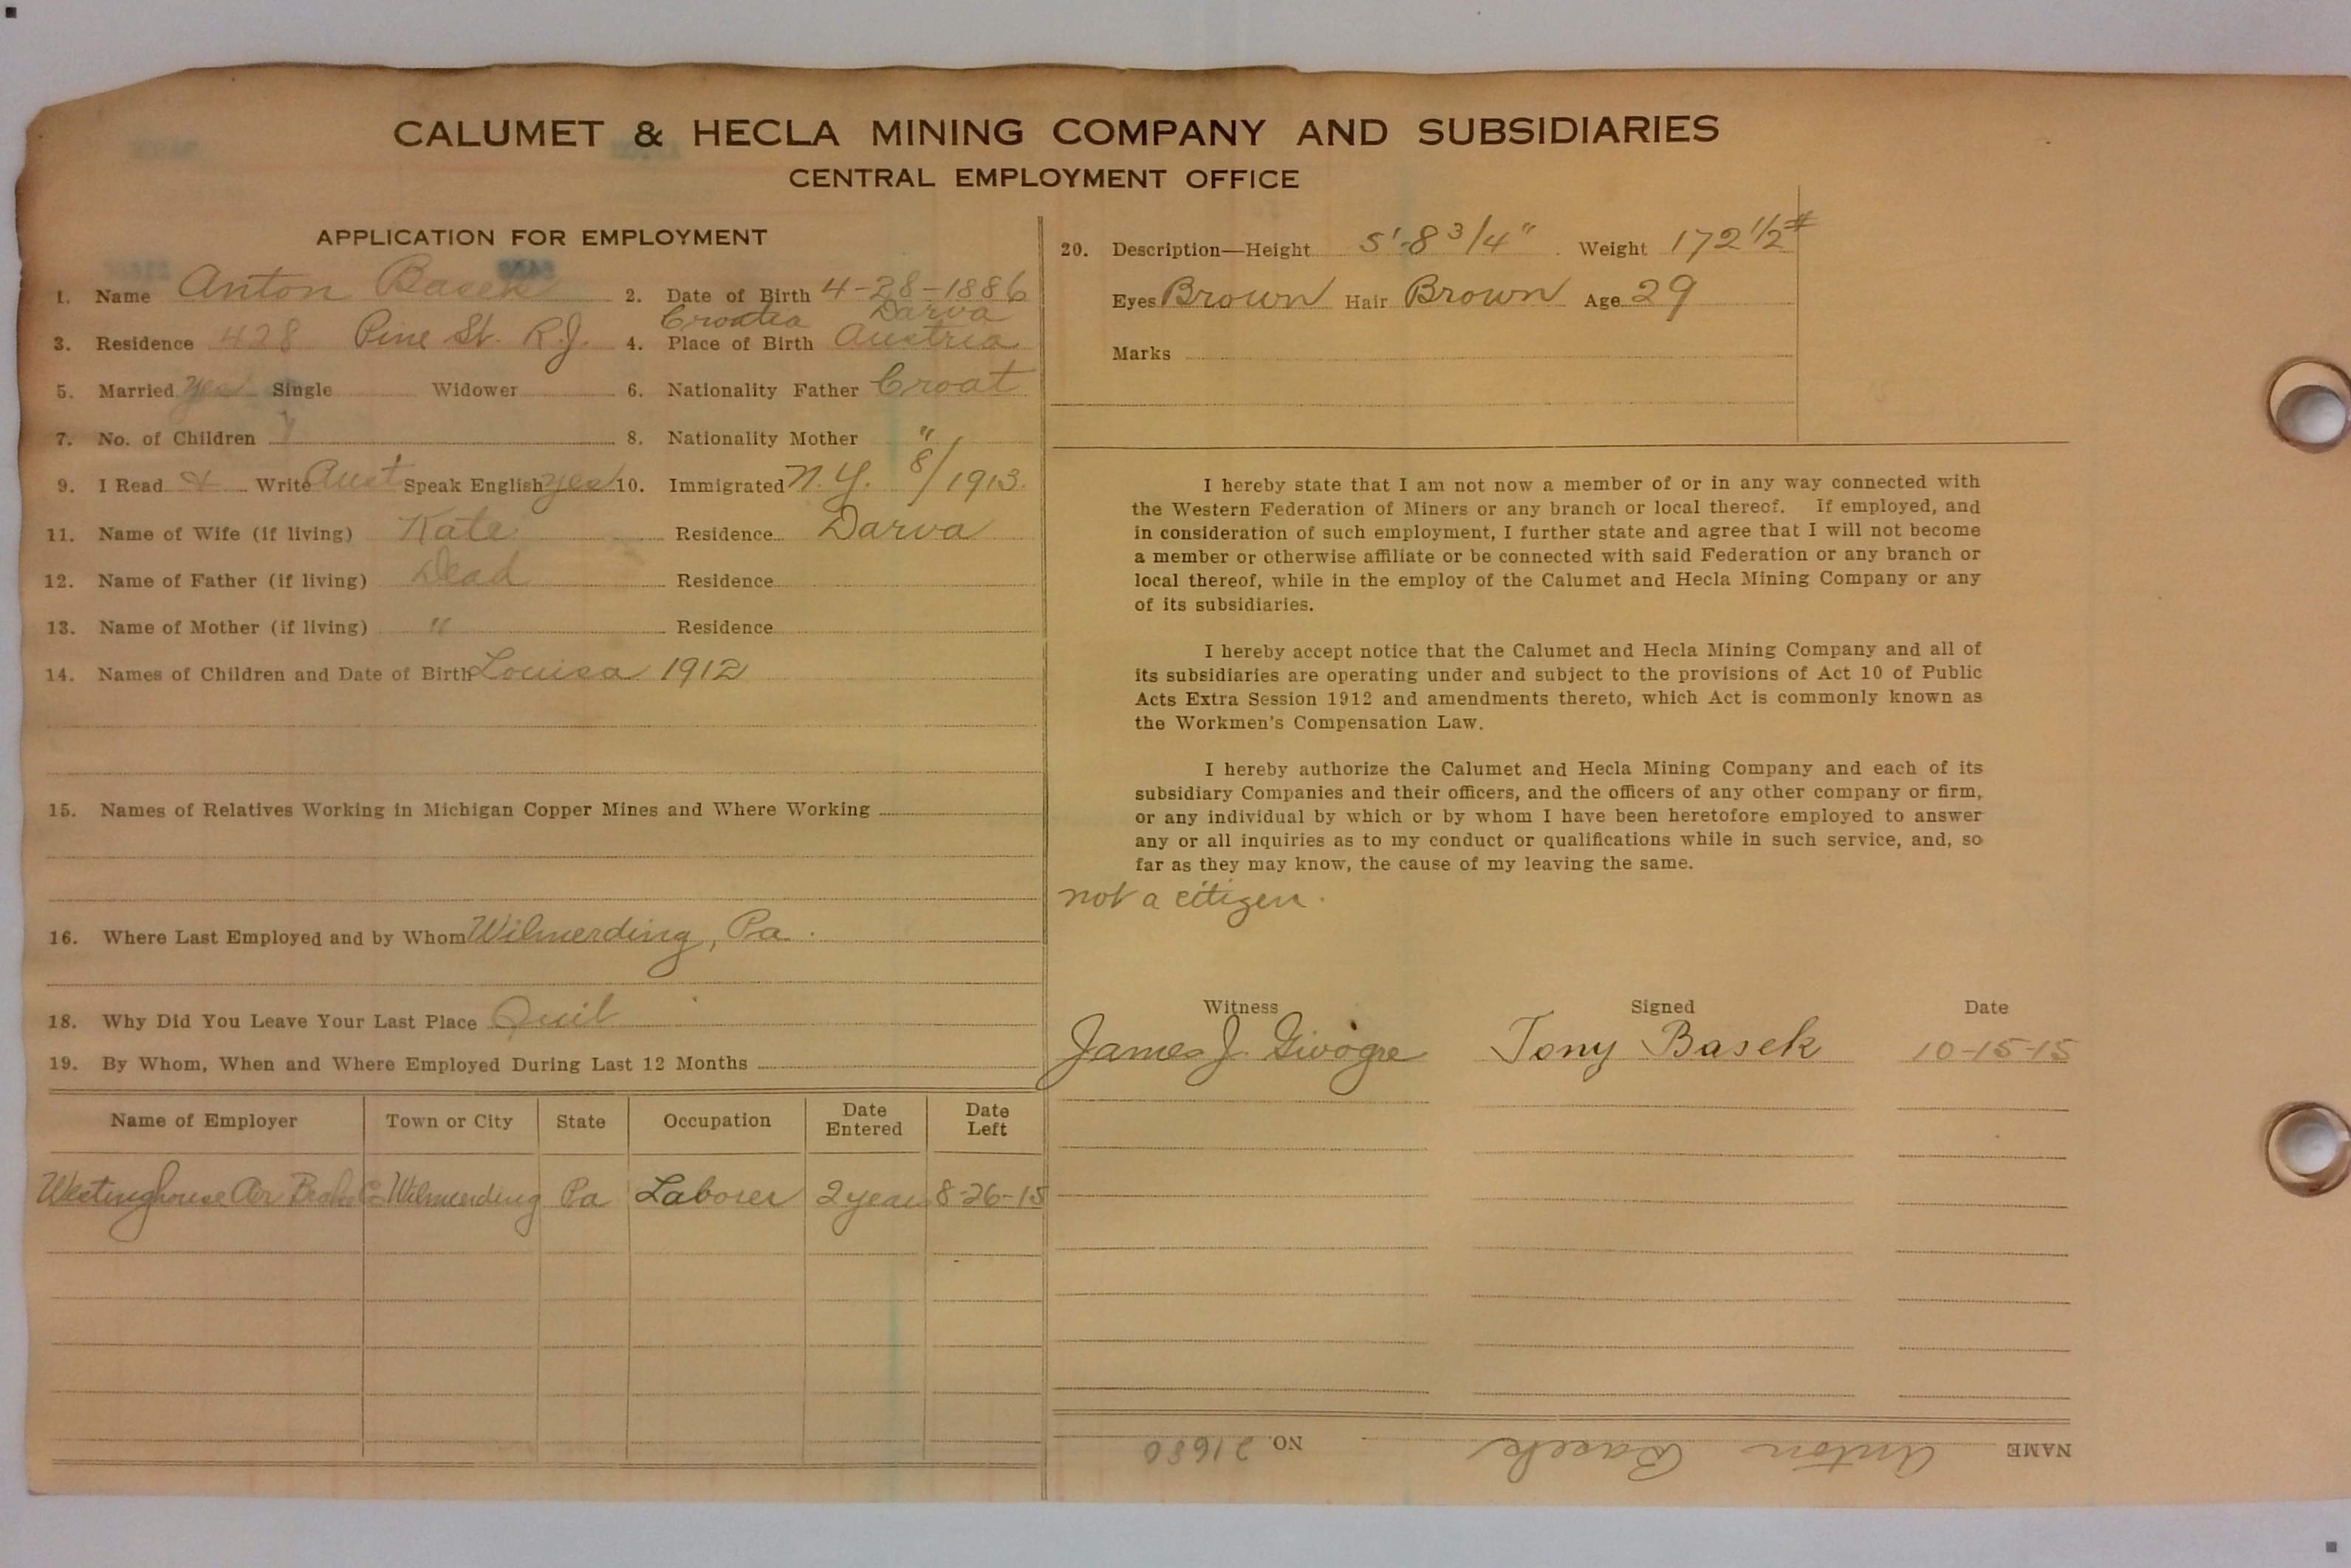 CALUMET & HECLA MINING COMPANY AND SUBSIDIARIES
CENTRAL EMPLOYMENT OFFICE
APPLICATION FOR EMPLOYMENT
1. Name Anton Basek 2. Date of Birth 4-28-1886
Croatia Darva
3. Residence 428 Pine St. R.J. 4. Place of Birth Austria
5. Married yes Single Widower 6. Nationality Father Croat
7. No. of Children 8. Nationality Mother "
9. I Read & Write Aust Speak English yes 10. Immigrated N.Y. 8/1913
11. Name of Wife (if living) Kate Residence Darva
12. Name of Father (if living) Dead Residence
13. Name of Mother (if living) " Residence
14. Names of Children and Date of Birth Louisa 1912
15. Names of Relatives Working in Michigan Copper Mines and Where Working
16. Where Last Employed and by Whom Wilmerding, Pa.
18. Why Did You Leave Your Last Place Quit
19. By Whom, When and Where Employed During Last 12 Months
Name of Employer Town or City State Occupation Date Entered Date Left
Westinghouse Air Brake Co Wilmerding Pa Laborer 2 years 8-26-15
20. Description—Height 5'-8 3/4" Weight 172 1/2#
Eyes Brown Hair Brown Age 29
Marks
I hereby state that I am not now a member of or in any way connected with
the Western Federation of Miners or any branch or local thereof. If employed, and
in consideration of such employment, I further state and agree that I will not become
a member or otherwise affiliate or be connected with said Federation or any branch or
local thereof, while in the employ of the Calumet and Hecla Mining Company or any
of its subsidiaries.
I hereby accept notice that the Calumet and Hecla Mining Company and all of
its subsidiaries are operating under and subject to the provisions of Act 10 of Public
Acts Extra Session 1912 and amendments thereto, which Act is commonly known as
the Workmen's Compensation Law.
I hereby authorize the Calumet and Hecla Mining Company and each of its
subsidiary Companies and their officers, and the officers of any other company or firm,
or any individual by which or by whom I have been heretofore employed to answer
any or all inquiries as to my conduct or qualifications while in such service, and, so
far as they may know, the cause of my leaving the same.
not a citizen.
Witness Signed Date
James J. Tony Basek 10-15-15
NAME Anton Basek NO. 21686